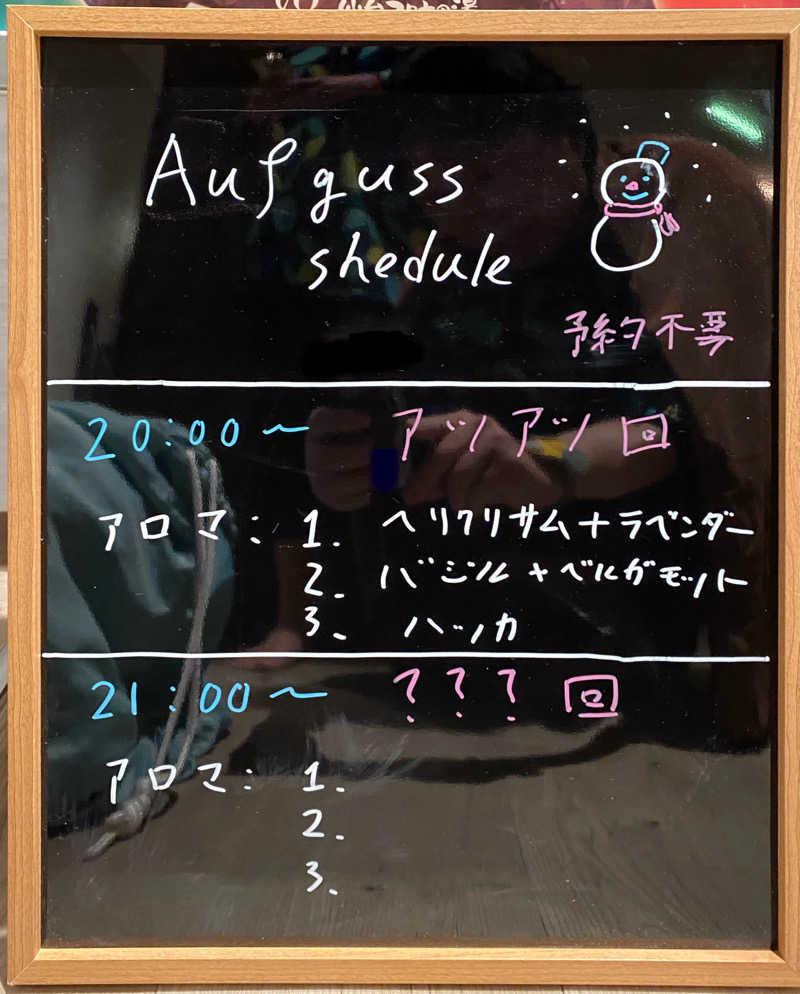 Aufguss
shedule
予約不要
20:00～ アツアツ回
アロマ: 1. ヘリクリサム+ラベンダー
2. バジル+ベルガモット
3. ハッカ
21:00～ ??? 回
アロマ: 1.
2.
3.